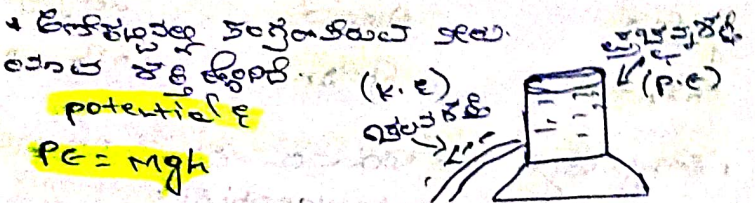 • ಅಣೆಕಟ್ಟಿನಲ್ಲಿ ಸಂಗ್ರಹವಿರುವ ನೀರು.
ಯಾವ ಶಕ್ತಿ ಹೊಂದಿದೆ.
potential ε
PE = Mgh
(K.ε)
ಚಲನ ಶಕ್ತಿ
ಪ್ರಚ್ಛನ್ನ ಶಕ್ತಿ
(p.e)